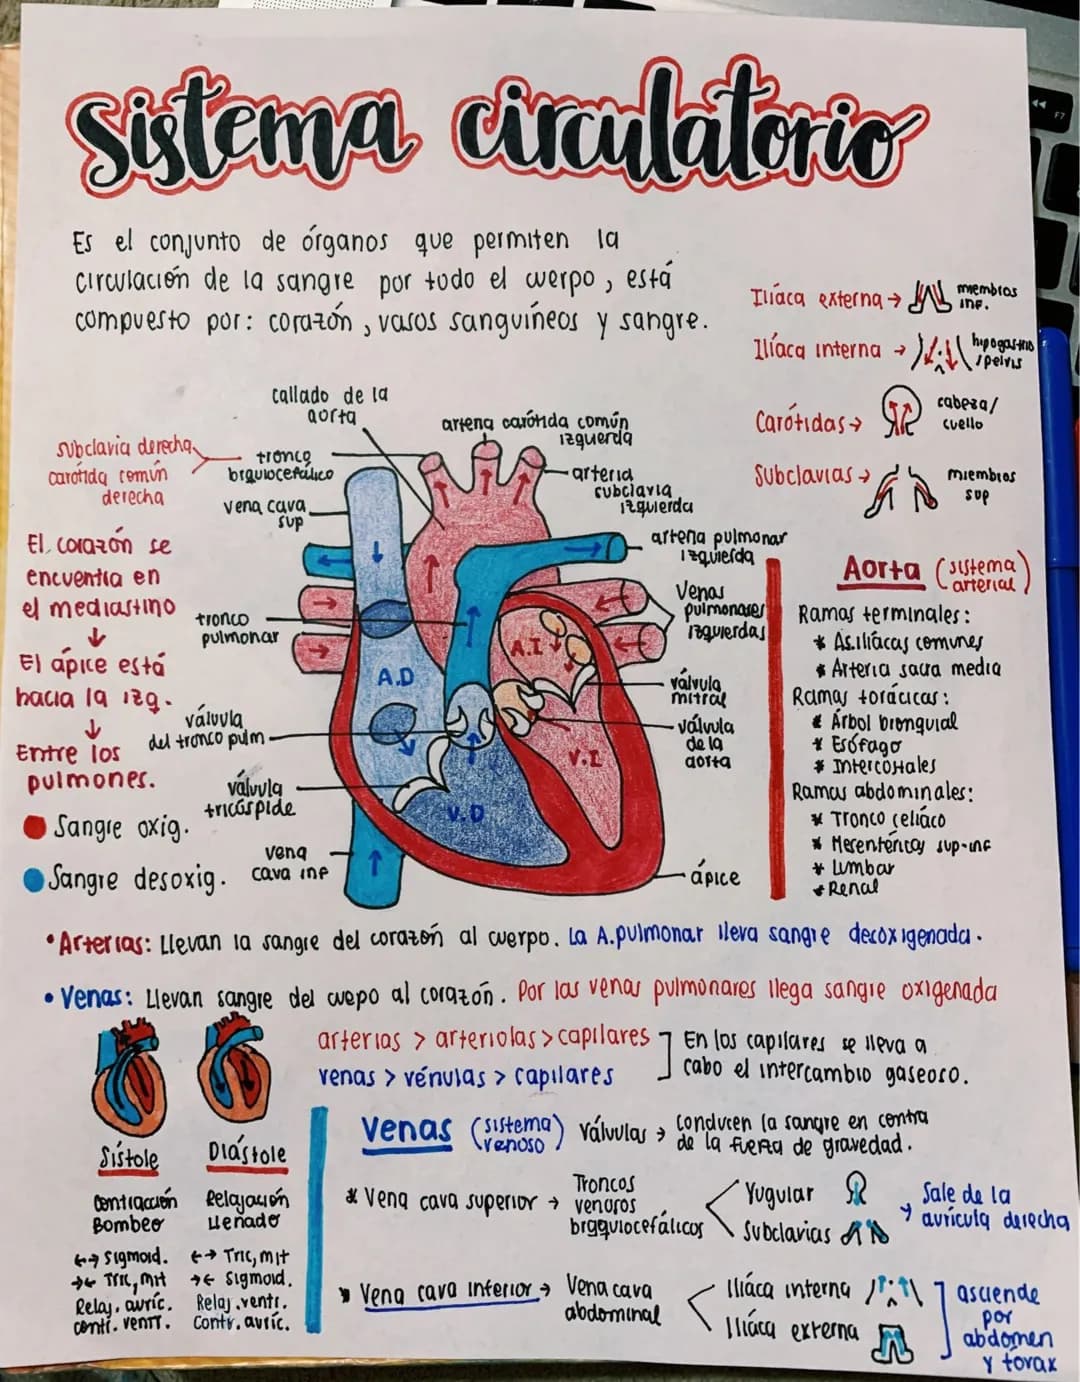 sistema circulatorio
Es el conjunto de órganos que permiten la
circulación de la sangre por todo el cuerpo, está
compuesto por: corazón, vasos sanguíneos y sangre.
Ilíaca externa → miembros
inf.
Ilíaca interna → hipogastrio
/pelvis
Carótidas → cabeza/
cuello
Subclavias → miembros
sup
callado de la
aorta
arteria carótida común
izquierda
subclavia derecha
carótida común
derecha
tronco
braquiocefálico
arteria
subclavia
izquierda
vena cava
sup
arteria pulmonar
izquierda
El corazón se
encuentra en
el mediastino
↓
El ápice está
hacia la izq.
↓
Entre los
pulmones.
tronco
pulmonar
Venas
pulmonares
izquierdas
A.I
A.D
válvula
mitral
válvula
del tronco pulm
válvula
de la
aorta
V.I
válvula
tricúspide
V.D
vena
cava inf
ápice
Sangre oxig.
Sangre desoxig.
Aorta (sistema
arterial)
Ramas terminales:
* As.ilíacas comunes
* Arteria sacra media
Ramas torácicas:
* Árbol bronquial
* Esófago
* Intercostales
Ramas abdominales:
* Tronco celíaco
* Mesentéricas sup-inf
* Lumbar
* Renal
• Arterias: Llevan la sangre del corazón al cuerpo. La A.pulmonar lleva sangre desoxigenada.
• Venas: Llevan sangre del cuepo al corazón. Por las venas pulmonares llega sangre oxigenada
arterias > arteriolas > capilares
venas > vénulas > capilares
En los capilares se lleva a
cabo el intercambio gaseoso.
Sístole
Contracción
Bombeo
←→ Sigmoid.
→← Tric, mit
Relaj. auríc.
contr. ventr.
Diástole
Relajación
Llenado
←→ Tric, mit
→← Sigmoid.
Relaj. ventr.
Contr. auríc.
Venas (sistema
venoso)
Válvulas → conducen la sangre en contra
de la fuerza de gravedad.
* Vena cava superior → Troncos
venosos
braquiocefálicos
Yugular
Subclavias
→ Sale de la
aurícula derecha
* Vena cava inferior → Vena cava
abdominal
Ilíaca interna
Ilíaca externa
asciende
por
abdomen
y tórax
F7